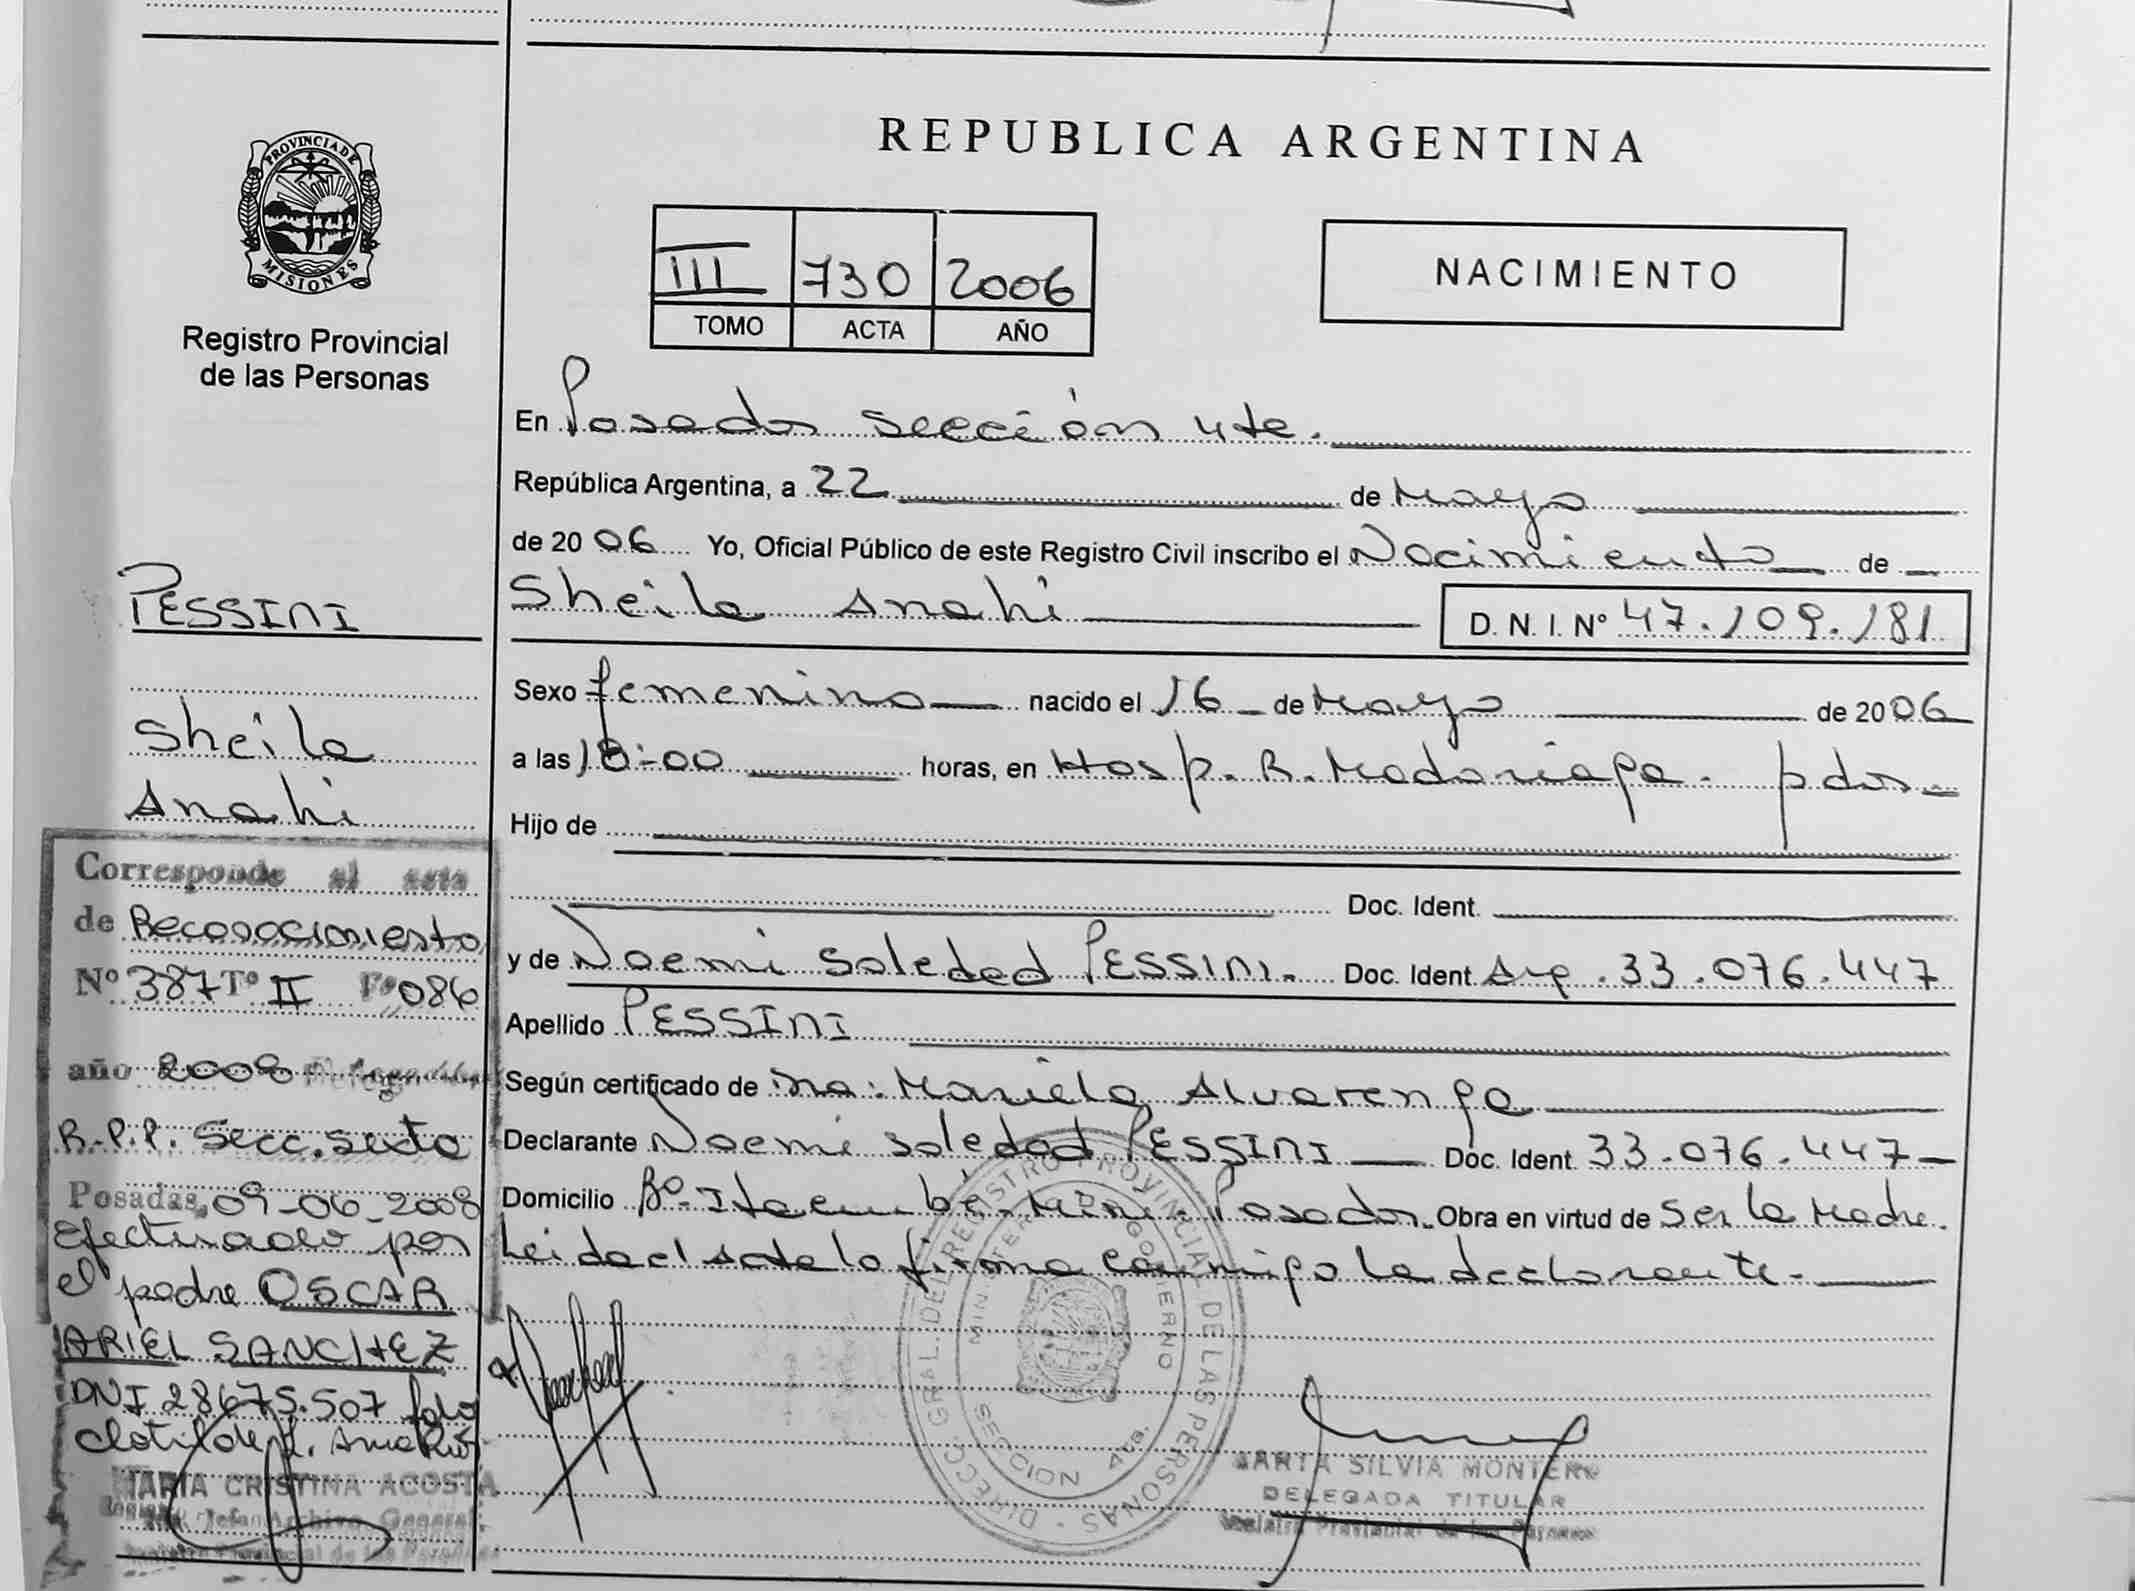 PROVINCIA DE
MISIONES
Registro Provincial
de las Personas
REPUBLICA ARGENTINA
III 730 2006
TOMO ACTA AÑO
NACIMIENTO
En Posadas sección 4ta.
República Argentina, a 22 de Mayo
de 2006 Yo, Oficial Público de este Registro Civil inscribo el Nacimiento de
Sheila Anahi D. N. I. Nº 47.109.181
Sexo femenino nacido el 16 de Mayo de 2006
a las 18:00 horas, en Hosp. R. Madariaga. pdas
Hijo de
Doc. Ident.
y de Noemi Soledad PESSINI. Doc. Ident. Arg. 33.076.447
Apellido PESSINI
Según certificado de Mariela Alvarenga
Declarante Noemi Soledad PESSINI Doc. Ident. 33.076.447
Domicilio Bº Itaembé Mini. Posadas. Obra en virtud de Ser la Madre.
Leida el acta la firma conmigo la declarante.
PESSINI
Sheila
Anahi
Corresponde al acta
de Reconocimiento
Nº 387 Tº II Fº 086
año 2008
R.P.P. Secc. sexta
Posadas, 09-06-2008
Efectuado por
el padre OSCAR
ARIEL SANCHEZ
DNI 28675.507
MARIA CRISTINA ACOSTA
Jefa Archivo General
Registro Provincial de las Personas
DIRECC. GRAL. DEL REGISTRO PROVINCIAL DE LAS PERSONAS
MINISTERIO DE GOBIERNO
SECCION 4ta.
MARTA SILVIA MONTERO
DELEGADA TITULAR
Registro Provincial de las Personas